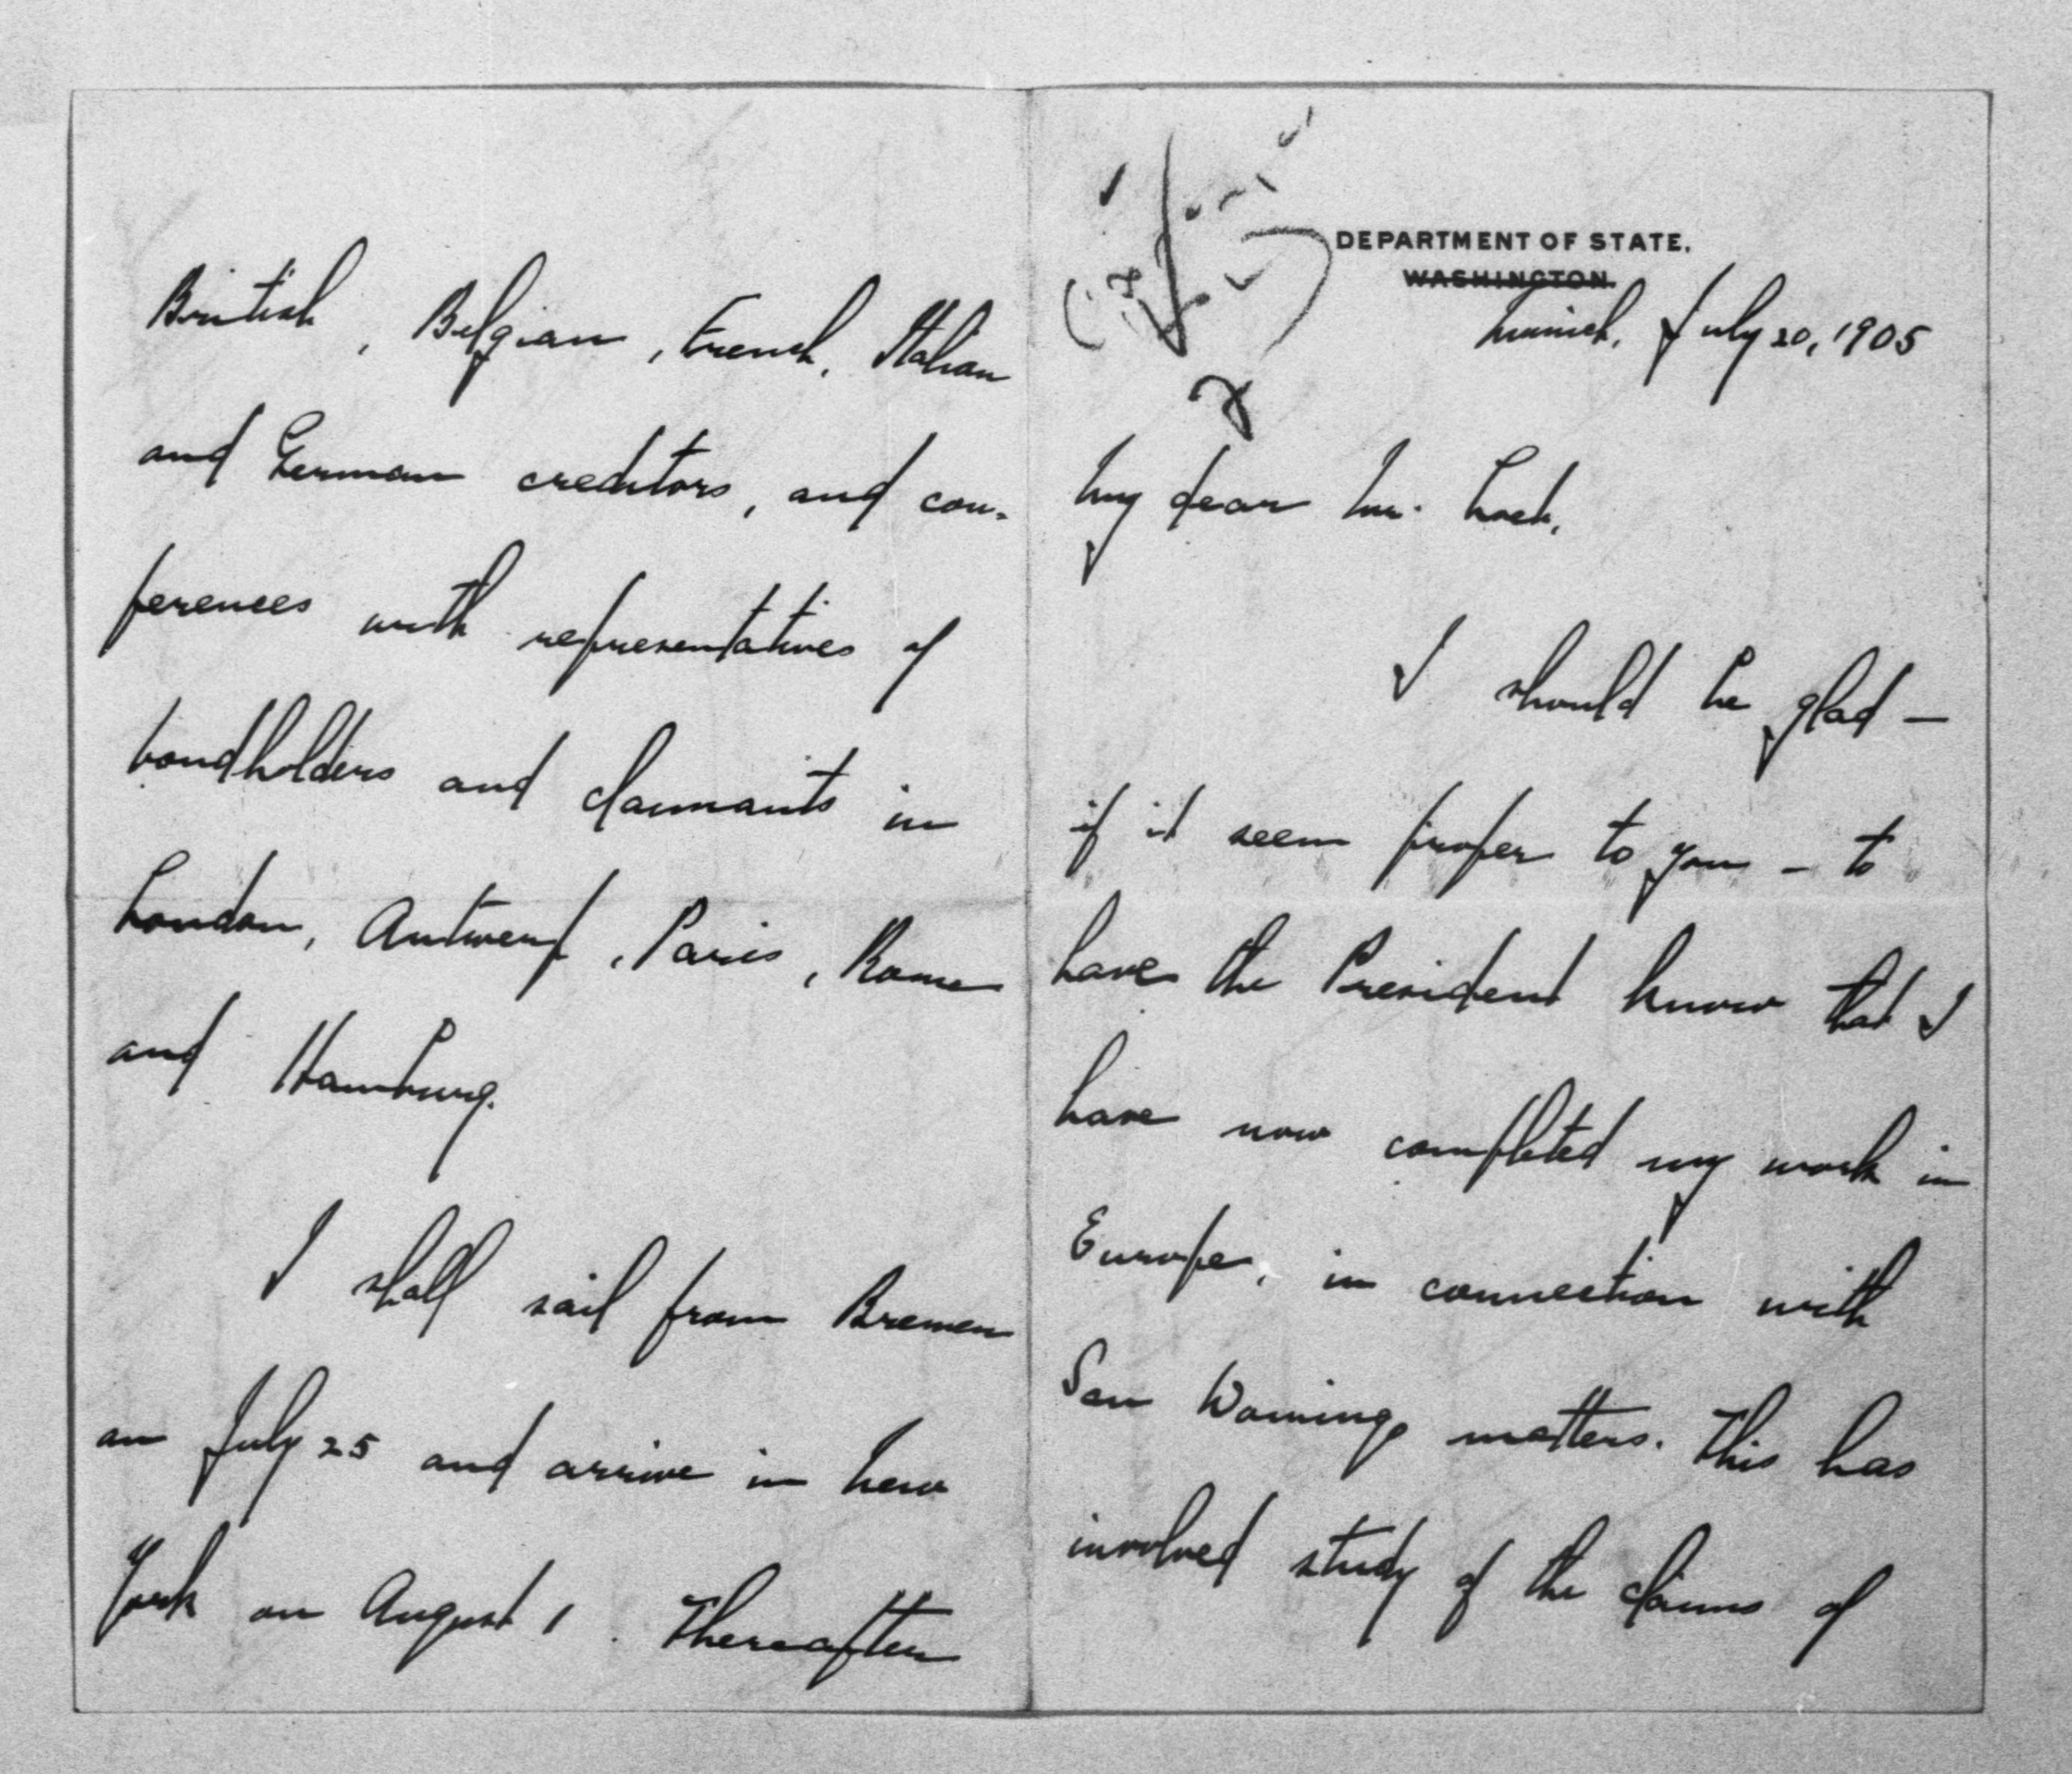 DEPARTMENT OF STATE.
WASHINGTON.
Munich, July 20, 1905
My dear Mr. Loeb,
I should be glad —
if it seem proper to you — to
have the President know that I
have now completed my work in
Europe, in connection with
San Domingo matters. This has
involved study of the claims of
British, Belgian, French, Italian
and German creditors, and con-
ferences with representatives of
bondholders and claimants in
London, Antwerp, Paris, Rome
and Hamburg.
I shall sail from Bremen
on July 25 and arrive in New
York on August 1. Thereafter